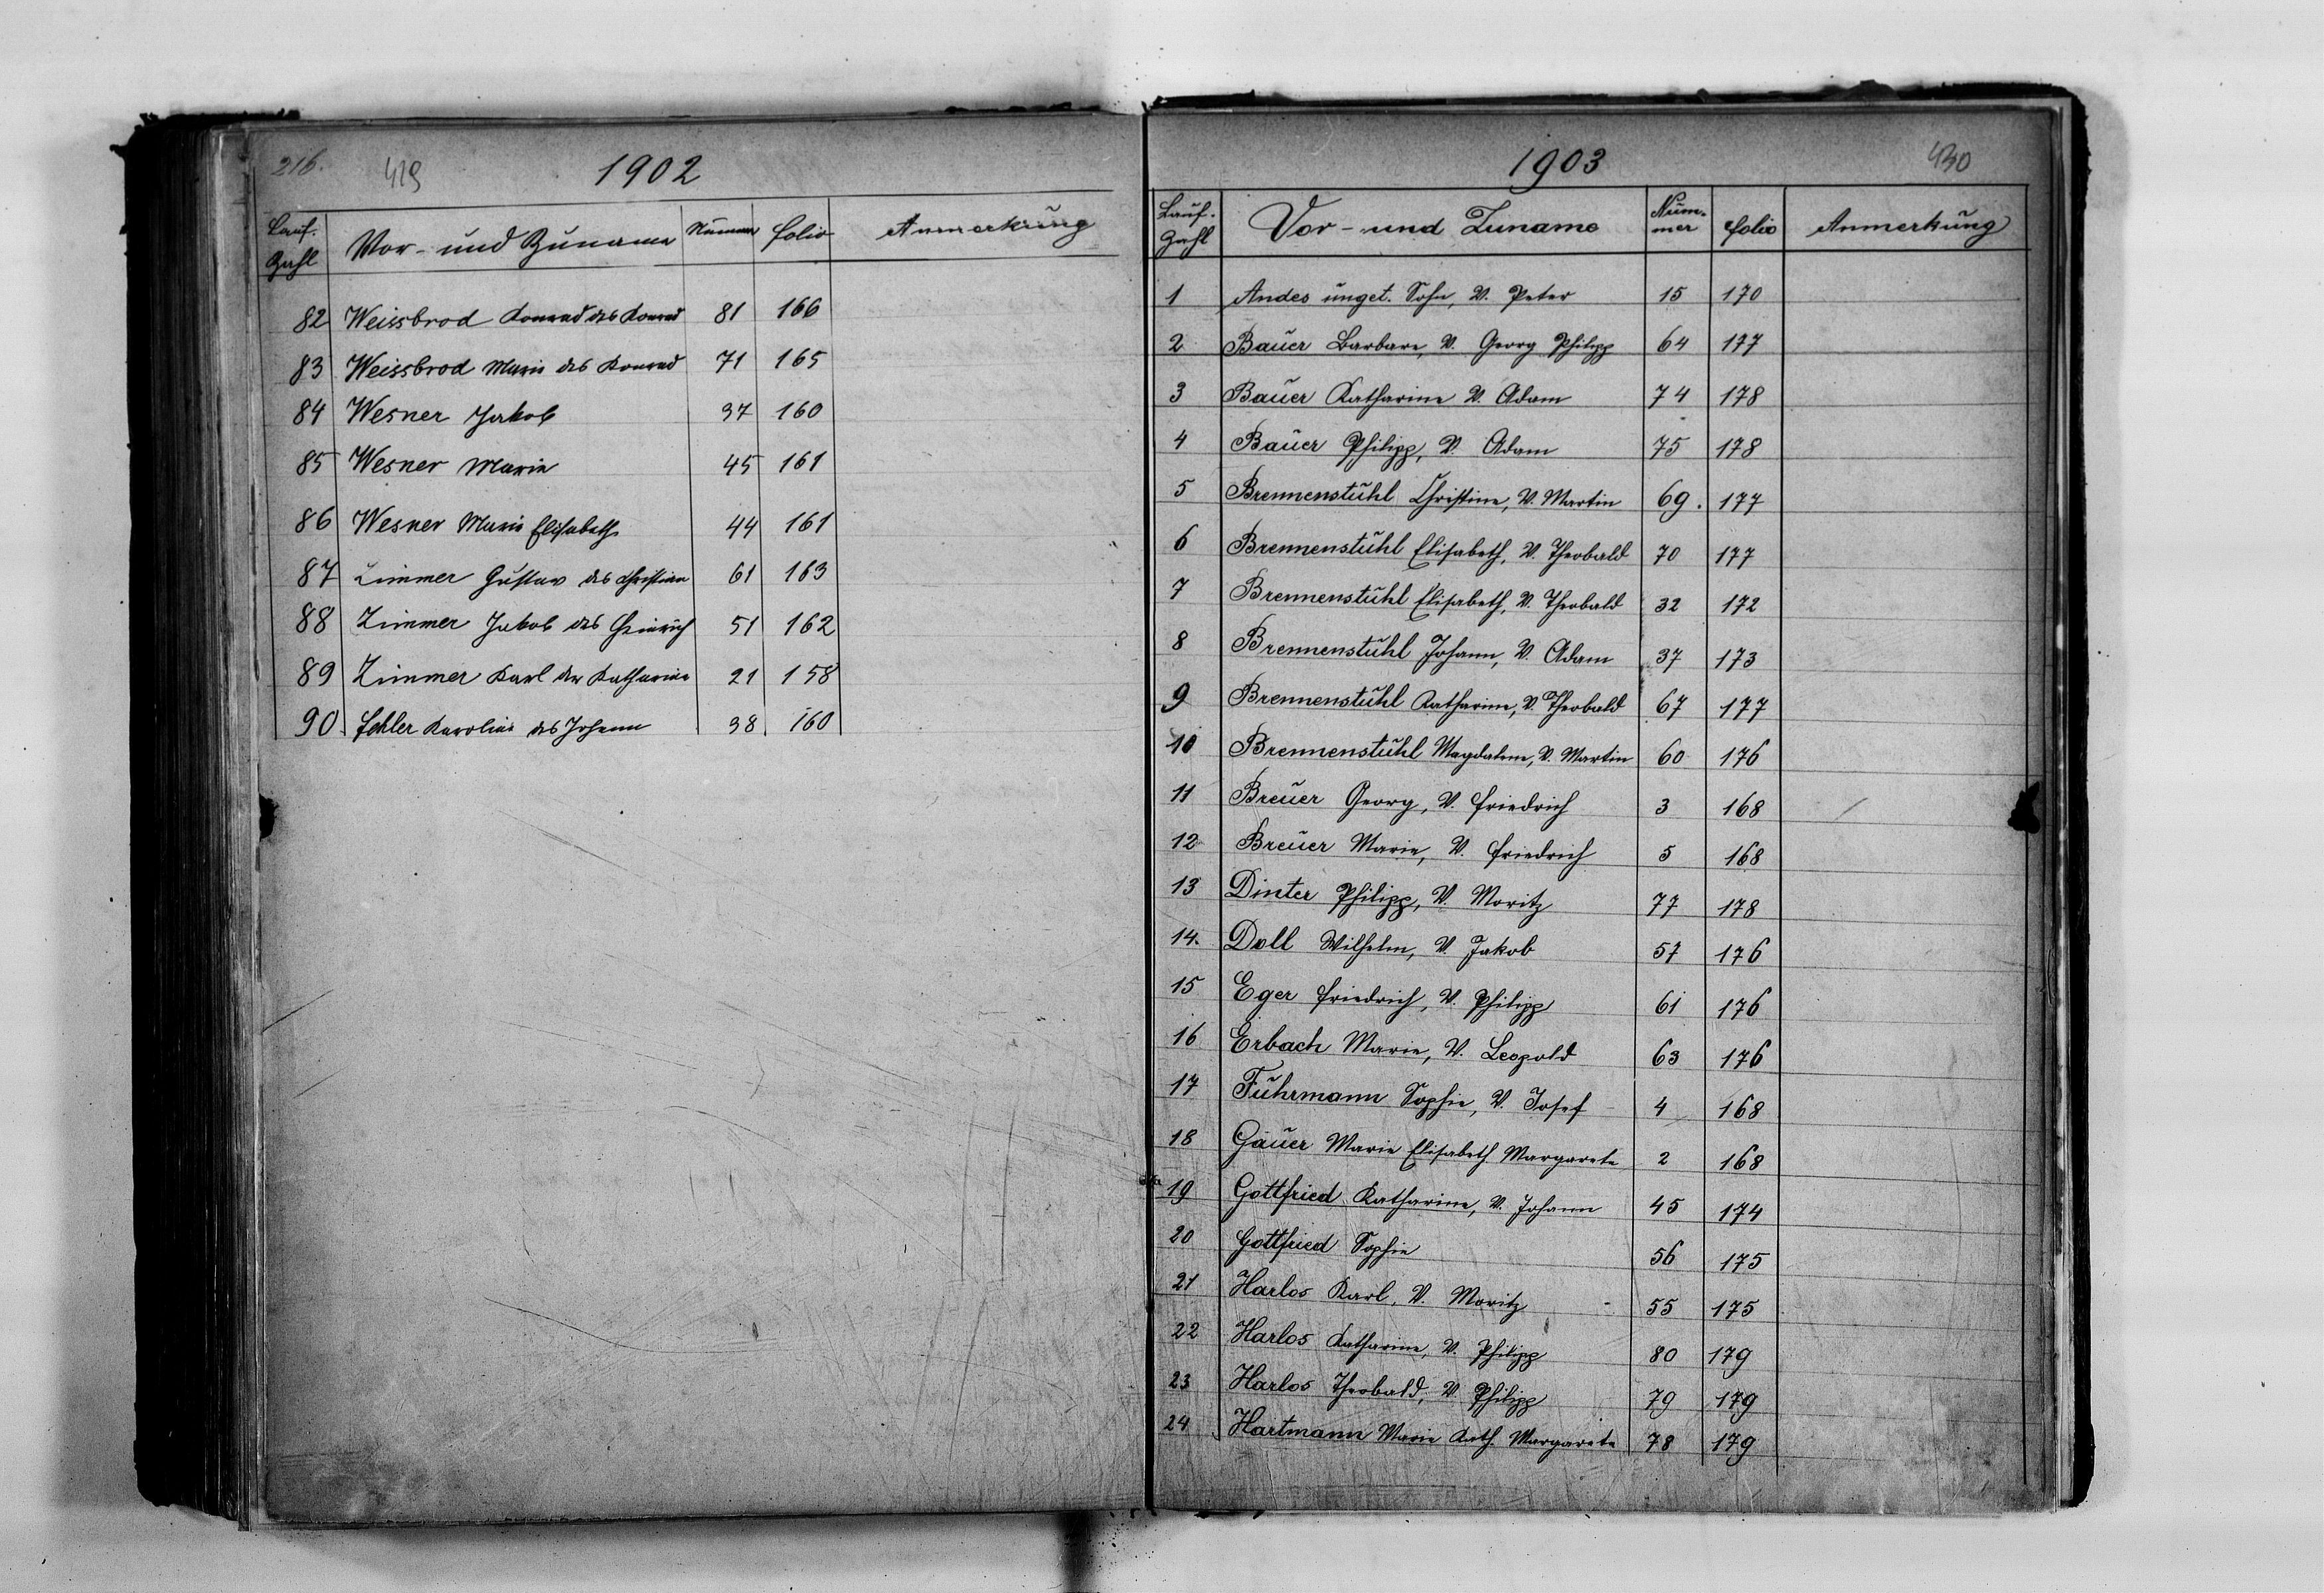 216. 419 1902
Lauf. Zahl Vor- und Zuname Numer folio Anmerkung
82 Weissbrod Konrad des Konrad 81 166
83 Weissbrod Marie des Konrad 71 165
84 Wesner Jakob 37 160
85 Wesner Marie 45 161
86 Wesner Marie Elisabeth 44 161
87 Zimmer Gustav des Christian 61 163
88 Zimmer Jakob des Heinrich 51 162
89 Zimmer Karl der Katharina 21 158
90. Karolina des Johann 38. 160
1903 430
Lauf. Zahl Vor- und Zuname Num-mer folio Anmerkung
1 Andes unget. Sohn, V. Peter 15 170
2 Bauer Barbara, V. Georg Philipp 64 177
3 Bauer Katharina V. Adam 74 178
4 Bauer Philipp, V. Adam 75 178
5 Brennenstuhl Christine, V. Martin 69. 177
6 Brennenstuhl Elisabeth, V. Theobald 70 177
7 Brennenstuhl Elisabeth, V. Theobald 32 172
8 Brennenstuhl Johann, V. Adam 37 173
9 Brennenstuhl Katharine, V. Theobald 67 177
10 Brennenstuhl Magdalena, V. Martin 60 176
11 Breuer Georg, V. Friedrich 3 168
12 Breuer Marie, V. Friedrich 5 168
13 Dinter Philipp, V. Moritz 77 178
14. Doll Wilhelm, V. Jakob 57 176
15 Eger Friedrich, V. Philipp 61 176
16 Erbach Marie, V. Leopold 63 176
17 Fuhrmann Sophie, V. Josef 4 168
18 Gauer Marie Elisabeth Margarete 2 168
19 Gottfried Katharine, V. Johann 45 174
20 Gottfried Sophie 56 175
21 Harlos Karl, V. Moritz 55 175
22 Harlos Katharine, V. Philipp 80 179
23 Harlos Theobald, V. Philipp 79 179
24 Hartmann Marie Kath. Margarete 78 179